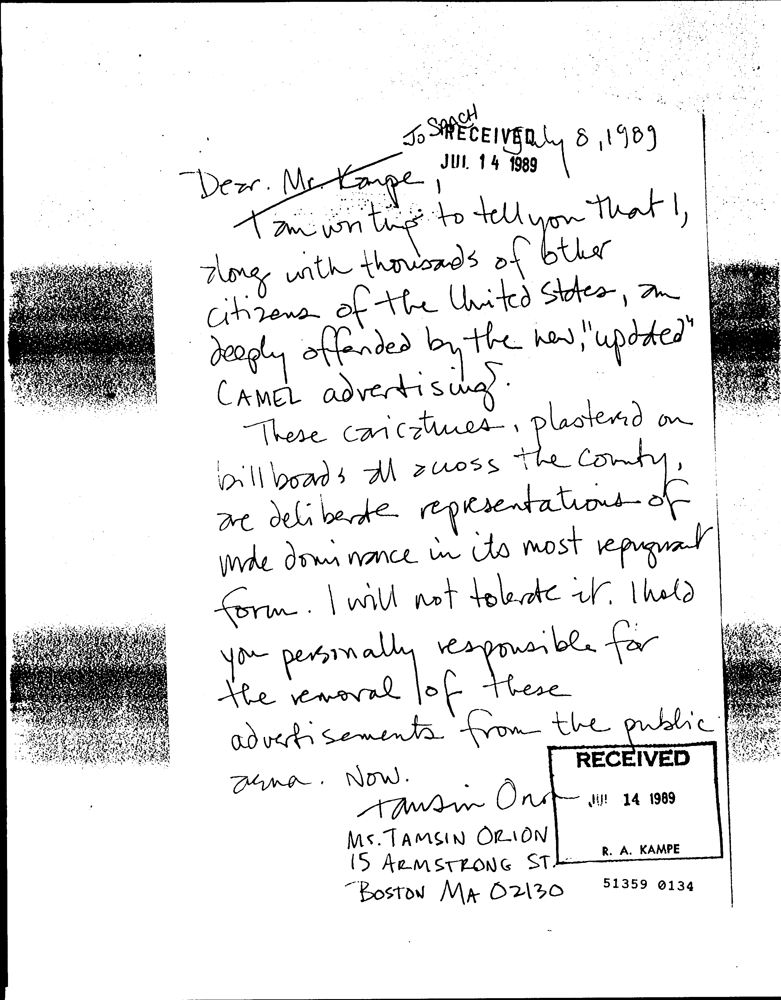 Jo SPACH
RECEIVED July 8, 1989
JUL 14 1989
Dear. Mr. Kampe,
I am writing to tell you that I,
along with thousands of other
citizens of the United States, am
deeply offended by the new, "updated"
CAMEL advertising.
These caricatures, plastered on
billboards all across the county,
are deliberate representations of
male dominance in its most repugnant
form. I will not tolerate it. I hold
you personally responsible for
the removal of these
advertisements from the public
arena. Now.
Tamsin Orion
MS. TAMSIN ORION
15 ARMSTRONG ST.
BOSTON MA 02130
RECEIVED
JUL 14 1989
R. A. KAMPE
51359 0134